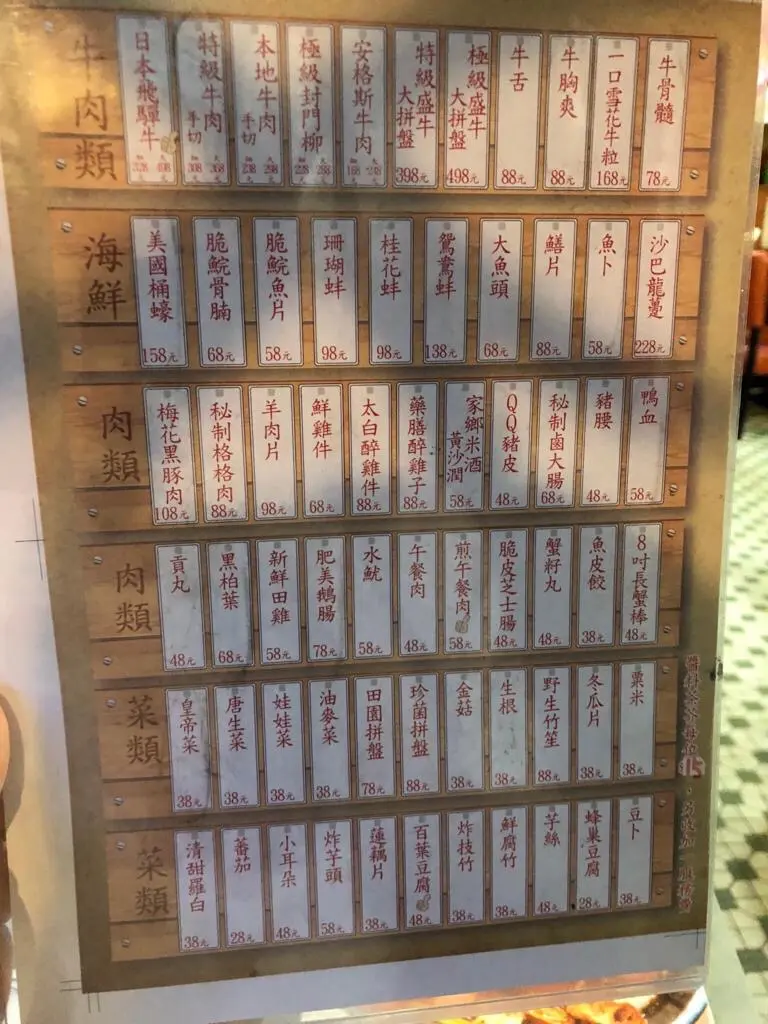 牛肉類
日本飛驒牛
特級牛肉 手切
本地牛肉 手切 238 298
極級封門柳 228 288
安格斯牛肉
特級盛牛大拼盤 398元
極級盛牛大拼盤 498元
牛舌 88元
牛胸爽 88元
一口雪花牛粒 168元
牛骨髓 78元
海鮮
美國桶蠔 158元
脆鯇骨腩 68元
脆鯇魚片 58元
珊瑚蚌 98元
桂花蚌 98元
鴛鴦蚌 138元
大魚頭 68元
鱔片 88元
魚卜 58元
沙巴龍躉 228元
肉類
梅花黑豚肉 108元
秘制格格肉 88元
羊肉片 98元
鮮雞件 68元
太白醉雞件 88元
藥膳醉雞子 88元
家鄉米酒黃沙潤 58元
QQ豬皮 48元
秘制鹵大腸 68元
豬腰 48元
鴨血 58元
肉類
貢丸 48元
黑柏葉 68元
新鮮田雞 58元
肥美鵝腸 78元
水魷 58元
午餐肉 48元
煎午餐肉 58元
脆皮芝士腸 48元
蟹籽丸 48元
魚皮餃 38元
8吋長蟹棒 48元
菜類
皇帝菜 38元
唐生菜 38元
娃娃菜 38元
油麥菜 38元
田園拼盤 78元
珍菌拼盤 88元
金菇 38元
生根 38元
野生竹笙 88元
冬瓜片 38元
粟米 38元
菜類
清甜羅白 38元
蕃茄 28元
小耳朵 48元
炸芋頭 58元
蓮藕片 38元
百葉豆腐 48元
炸枝竹 38元
鮮腐竹 38元
芋絲 48元
蜂巢豆腐 28元
豆卜 38元
醬料茶介每位$15，另收加一服務費